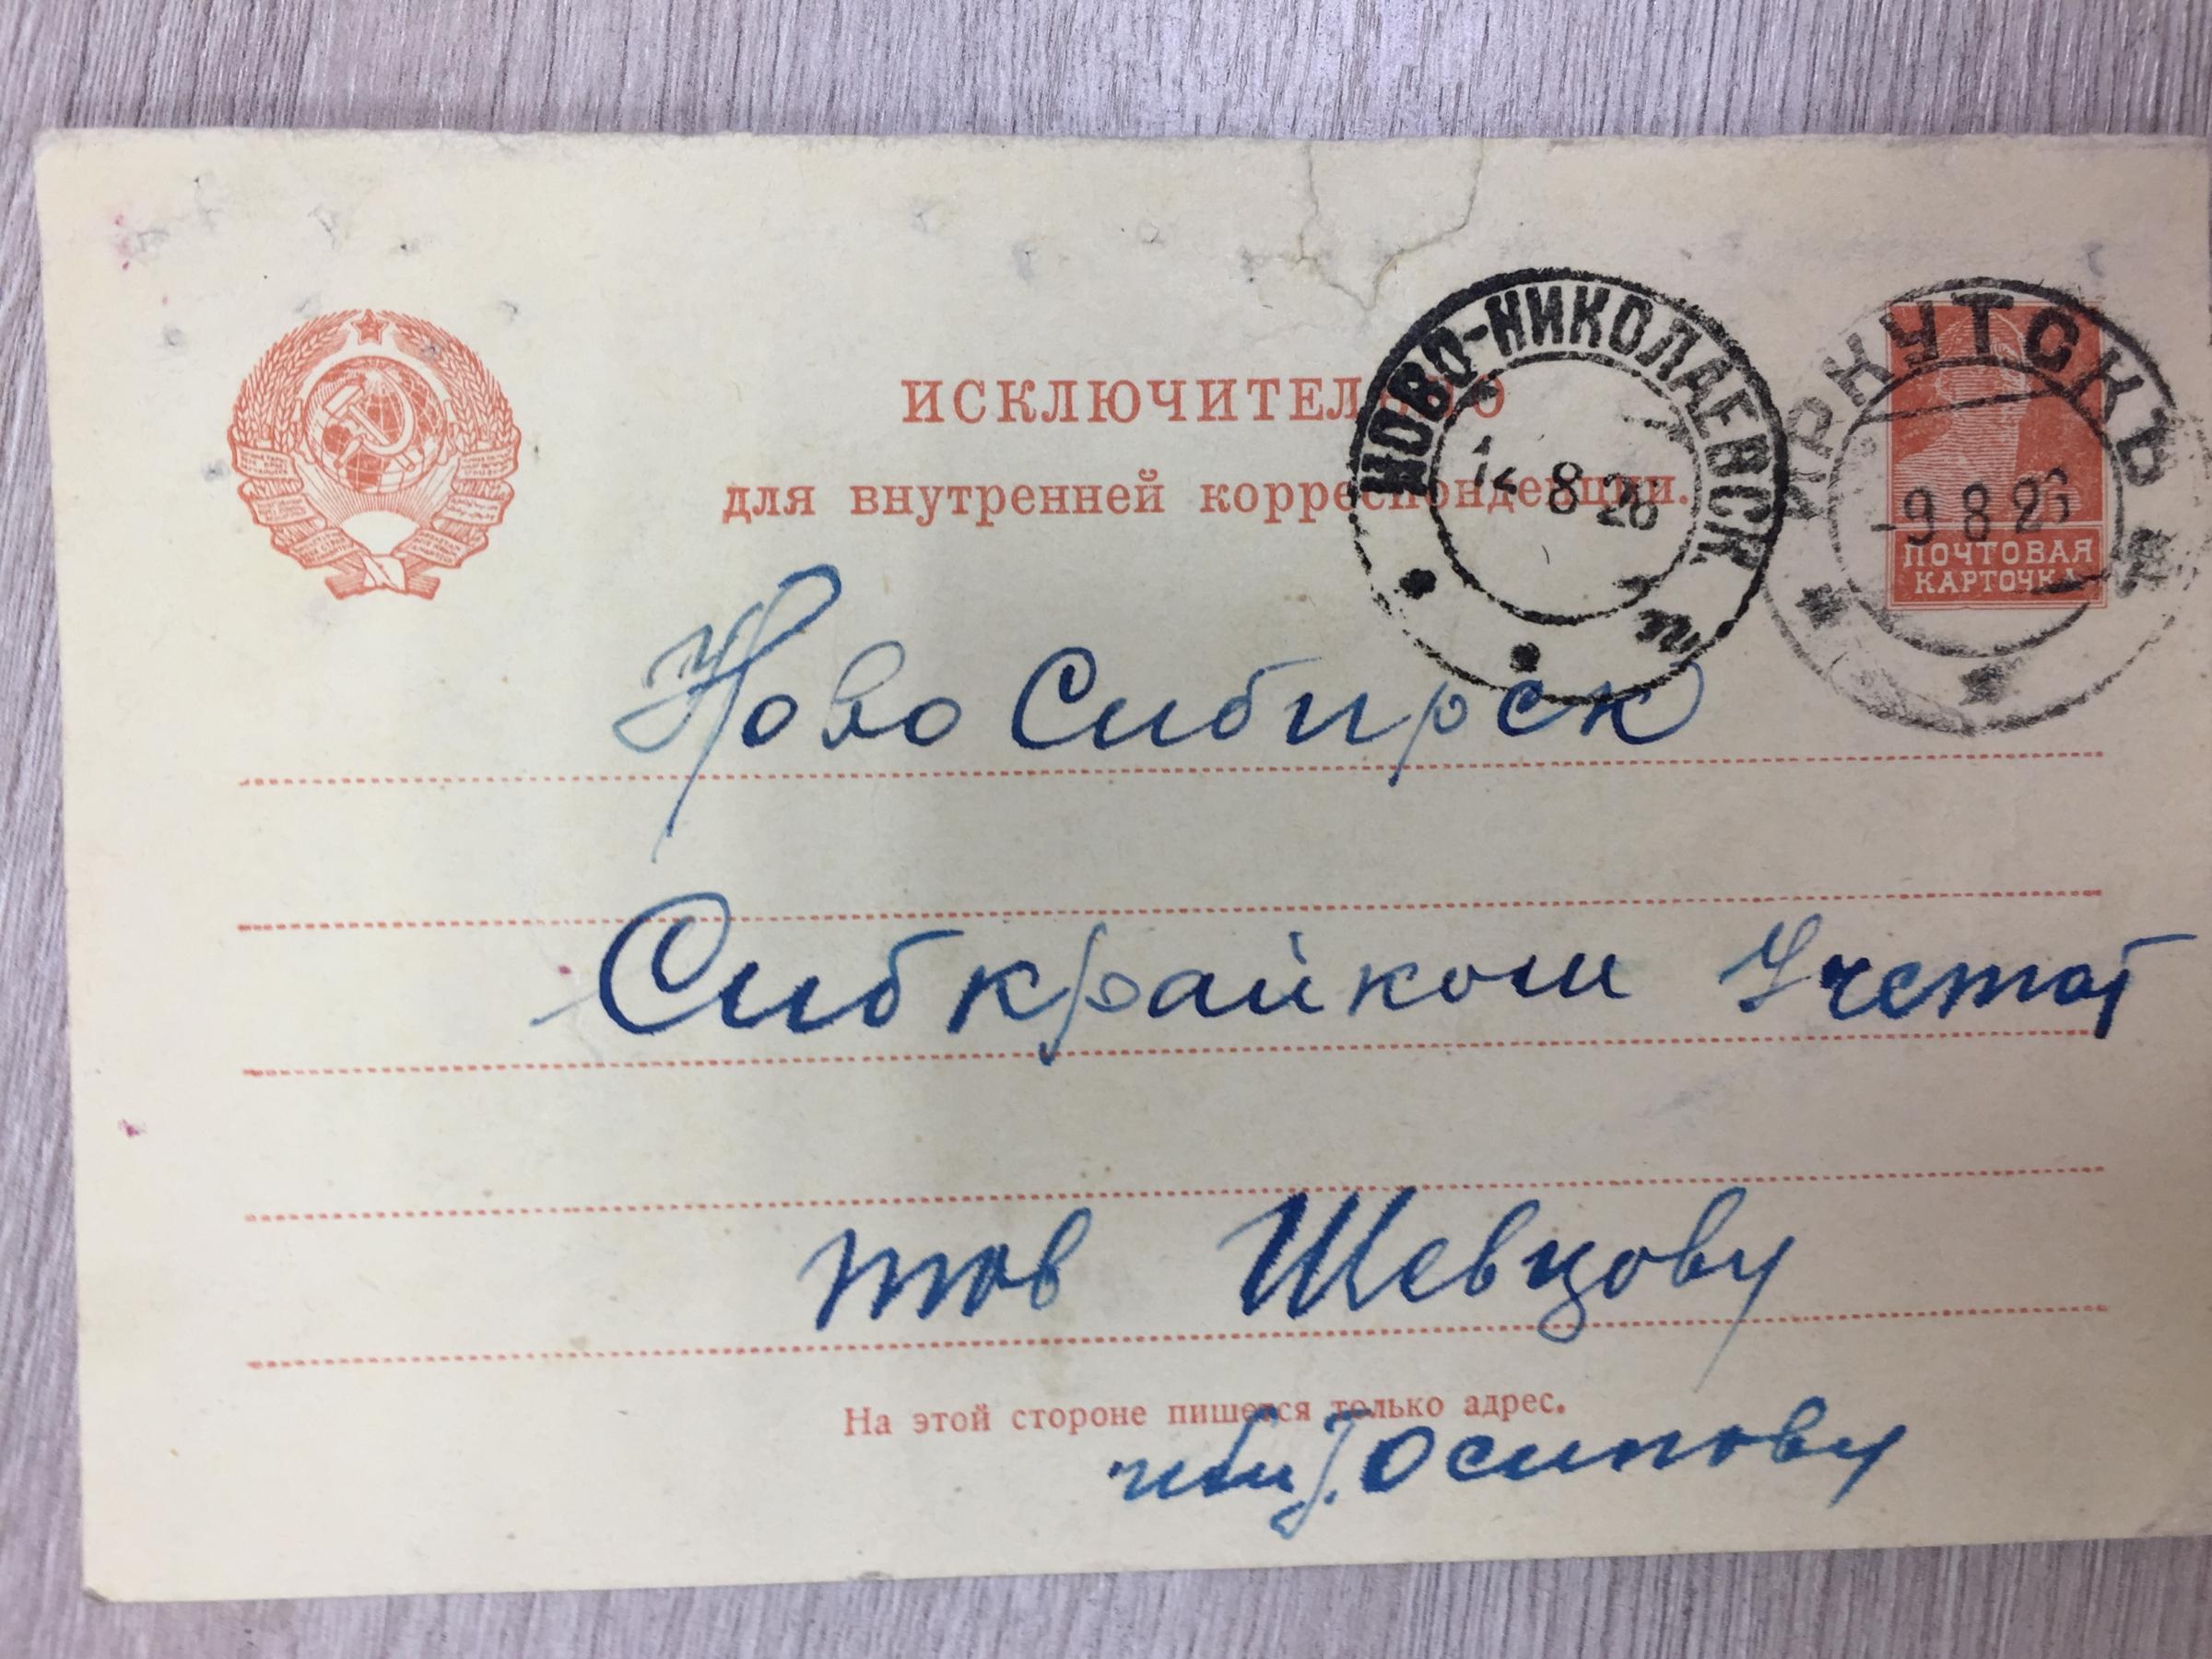 ИСКЛЮЧИТЕЛЬНО
для внутренней корреспонденции.
НОВО-НИКОЛАЕВСК
8 26
ИРКУТСКЪ
-9 8 26
ПОЧТОВАЯ
КАРТОЧКА
Ново Сибирск
Сибкрайком
тов Шевцову
На этой стороне пишется только адрес.
Осипову